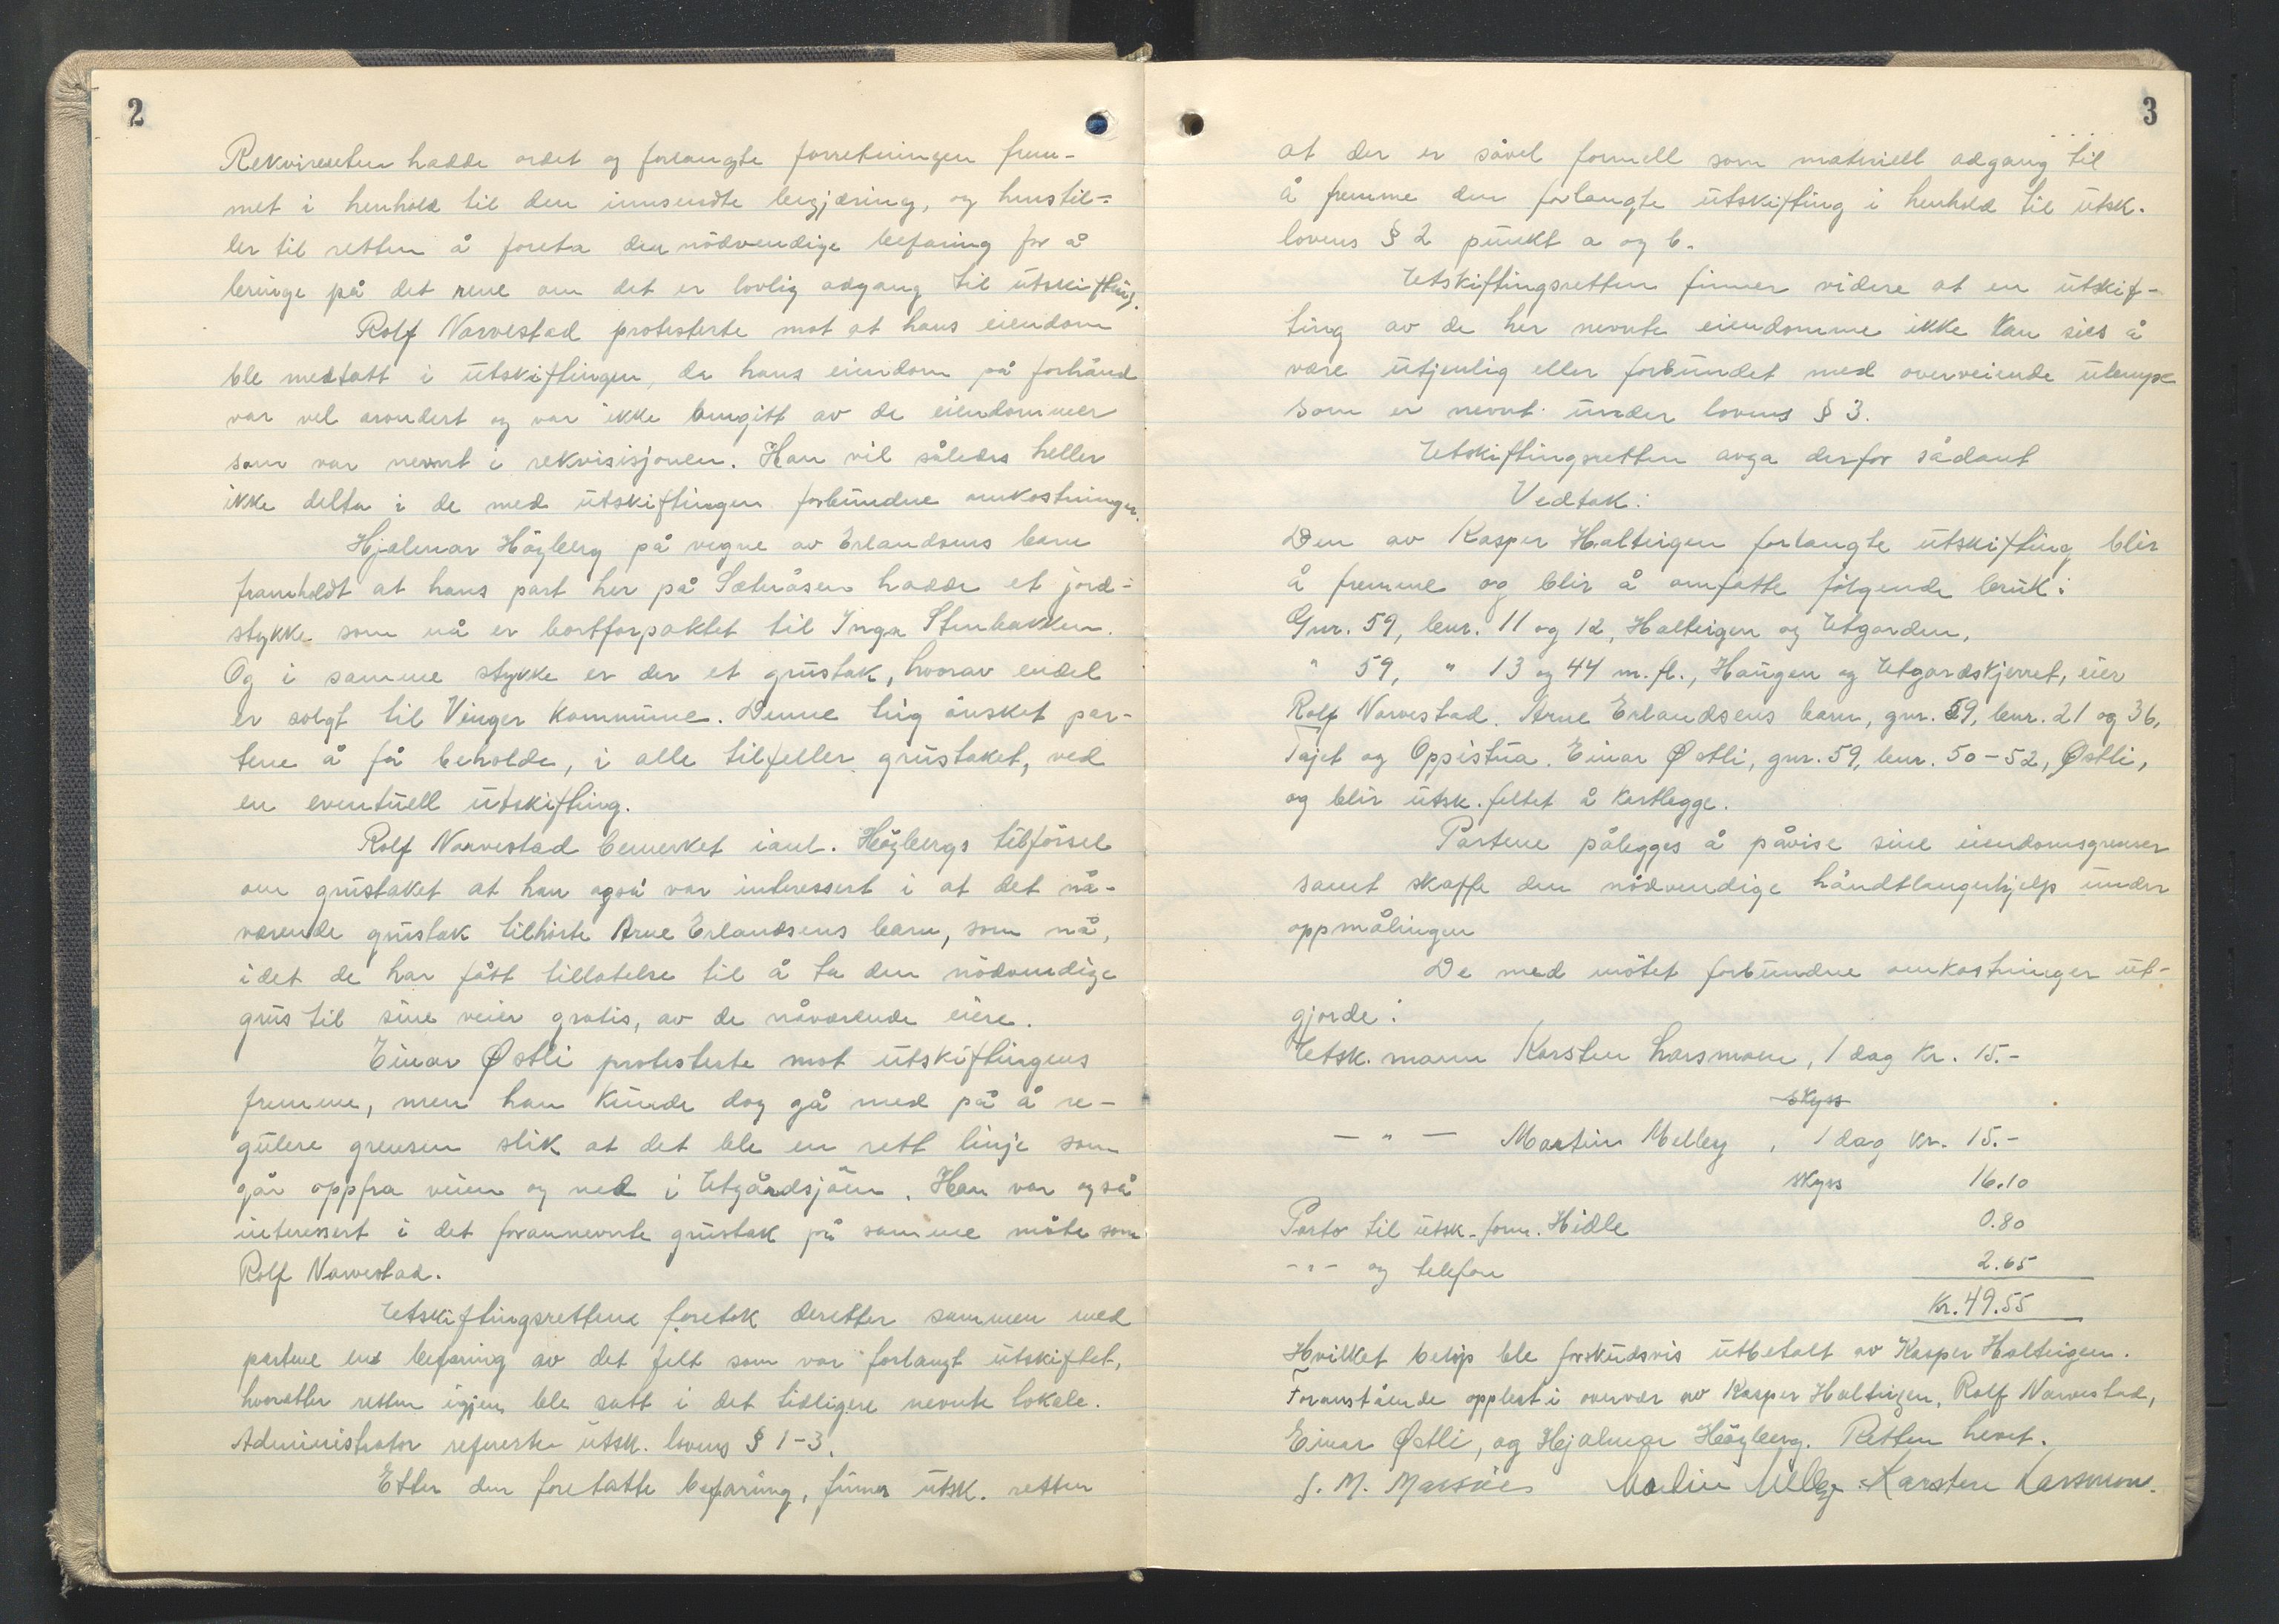 2
Rekvirenten hadde ordet og forlangte forretningen frem-
met i henhold til den innsendte begjæring, og henstil-
ler til retten å foreta den nödvendige befaring for å
bringe på det rene om det er lovlig adgang til utskifting.
Rolf Narvestad protesterte mot at hans eiendom
ble medtatt i utskiftingen, da hans eiendom på forhånd
var vel arondert og var ikke omgitt av de eiendommer
som var nevnt i rekvisisjonen. Han vil således heller
ikke delta i de med utskiftingen forbundne omkostninger.
Hjalmar Högberg på vegne av Erlandsens barn
framholdt at hans part her på Sæteråsen hadde et jord-
stykke som nå er bortforpaktet til Inga Stenbakken.
Og i samme stykke er der et grustak, hvorav endel
er solgt til Vinger kommune. Denne teig önsket par-
tene å få beholde, i alle tilfeller grustaket, ved
en eventuell utskifting.
Rolf Narvestad bemerket i anl. Högbergs tilförsel
om grustaket at han også var interessert i at det nå-
værende grustak tilhörte Arne Erlandsens barn, som nå,
idet de har fått tillatelse til å ta den nödvendige
grus til sine veier gratis, av de nåværende eiere.
Einar Østli protesterte mot utskiftingens
fremme, men han kunde dog gå med på å re-
gulere grensen slik at det ble en rett linje som
går oppfra veien og ned i Utgårdsjöen. Han var også
interessert i det forannevnte grustak på samme måte som
Rolf Narvestad.
Utskiftingsrettens foretok deretter sammen med
partene en befaring av det felt som var forlangt utskiftet,
hvoretter retten igjen ble satt i det tidligere nevnte lokale.
Administrator refererte utsk. lovens § 1-3.
Etter den foretatte befaring, finner utsk. retten
3
at der er såvel formell som materiell adgang til
å fremme den forlangte utskifting i henhold til utsk.
lovens § 2 punkt a og b.
Utskiftingsretten finner videre at en utskif-
ting av de her nevnte eiendomme ikke kan sies å
være utjenlig eller forbundet med overveiende ulempe
som er nevnt under lovens § 3.
Utskiftingsretten avga derfor sådant
Vedtak:
Den av Kasper Halteigen forlangte utskifting blir
å fremme og blir å omfatte fölgende bruk:
Gnr. 59, bnr. 11 og 12, Halteigen og Utgarden,
" 59, " 13 og 44 m.fl., Haugen og Utgardskjerret, eier
Rolf Narvestad. Arne Erlandsens barn, gnr. 59, bnr. 21 og 36,
Tajet og Oppistua. Einar Østli, gnr. 59, bnr. 50-52, Østli,
og blir utsk. feltet å kartlegge.
Partene pålegges å påvise sine eiendomsgrenser
samt skaffe den nödvendige håndtlangerhjelp under
oppmålingen
De med mötet forbundne omkostninger ut-
gjorde:
Utsk. mann Karsten Larsmoen, 1 dag kr. 15.-
skyss
— " — Martin Melby, 1 dag kr. 15.-
skyss 16.10
Porto til utsk. form. Hidle 0.80
-"- og telefon 2.65
Kr. 49.55
Hvilket belöp ble forskudsvis utbetalt av Kasper Halteigen.
Foranstående opplest i overvær av Kasper Halteigen, Rolf Narvestad,
Einar Østli, og Hjalmar Högberg. Retten hevet.
Martin Melby Karsten Larsmoen.